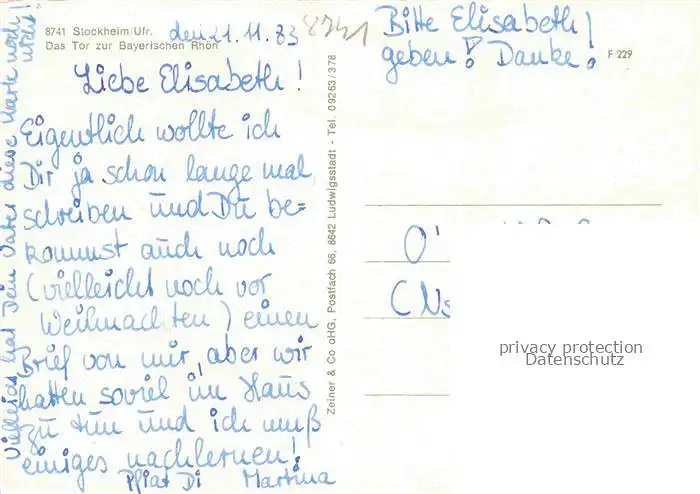 8741 Stockheim/Ufr.
Das Tor zur Bayerischen Rhön
den 21.11.83
8741
Liebe Elisabeth!
Eigentlich wollte ich
Dir ja schon lange mal
schreiben und Du be=
kommst auch noch
(vielleicht noch vor
Weihnachten) einen
Brief von mir, aber wir
hatten soviel im Haus
zu tun und ich muß
einiges nachlernen!
Pfiat Di Martina
Vielleicht hat Dein Vater diese Karte noch
nicht!
Zeiner & Co oHG, Postfach 66, 8642 Ludwigsstadt - Tel. 09263/378
Bitte Elisabeth
geben! Danke!
F 229
O'
(Ns
privacy protection
Datenschutz